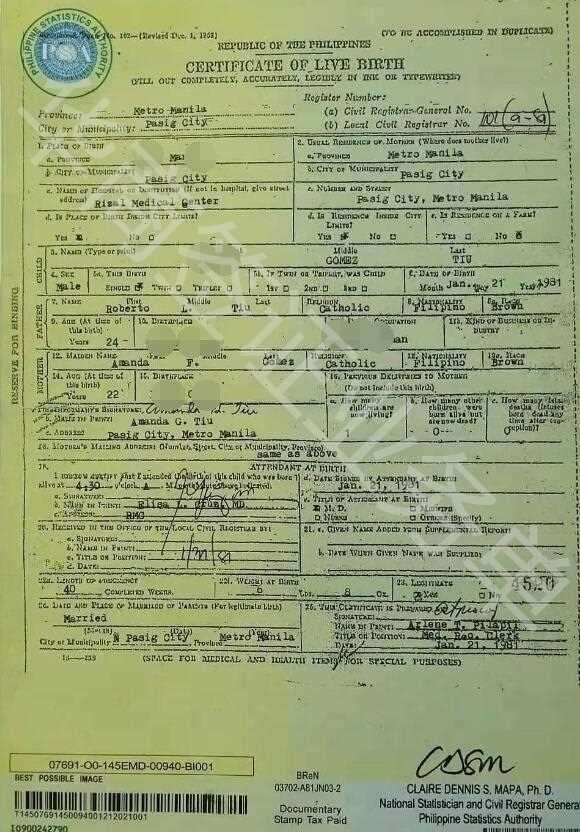 PHILIPPINE STATISTICS AUTHORITY
102—(Revised Dec. 1, 1958)
(TO BE ACCOMPLISHED IN DUPLICATE)
REPUBLIC OF THE PHILIPPINES
CERTIFICATE OF LIVE BIRTH
(FILL OUT COMPLETELY, ACCURATELY, LEGIBLY IN INK OR TYPEWRITER)
Register Number:
Province: Metro Manila
(a) Civil Registrar-General No.
City or Municipality: Pasig City
(b) Local Civil Registrar No.
1. PLACE OF BIRTH
2. USUAL RESIDENCE OF MOTHER (Where does mother live?)
a. PROVINCE
a. PROVINCE Metro Manila
b. CITY OR MUNICIPALITY Pasig City
b. CITY OR MUNICIPALITY Pasig City
c. NAME OF HOSPITAL OR INSTITUTION (If not in hospital, give street address) Rizal Medical Center
c. NUMBER AND STREET Pasig City, Metro Manila
d. IS PLACE OF BIRTH INSIDE CITY LIMITS?
d. IS RESIDENCE INSIDE CITY LIMITS?
e. IS RESIDENCE ON A FARM?
YES NO
YES NO
YES NO
RESERVE FOR BINDING
CHILD
3. NAME (Type or print)
Middle
Last
GOMEZ TIU
4. SEX Male
5a. THIS BIRTH
SINGLE TWIN TRIPLET
5b. IF TWIN OR TRIPLET, WAS CHILD
1ST 2ND 3RD
6. DATE OF BIRTH
Month Jan. Day 21 Year 1981
FATHER
7. NAME First Middle Last
Roberto L. Tiu
RELIGION Catholic
8. NATIONALITY Filipino
RACE Brown
9. AGE (At time of this birth)
Years 24
10. BIRTHPLACE
OCCUPATION
11b. KIND OF BUSINESS OR INDUSTRY
MOTHER
12. MAIDEN NAME First Middle
Amanda F. Gomez
Catholic
NATIONALITY Filipino
RACE Brown
14. AGE (At time of this birth)
Years 22
15. BIRTHPLACE
16. PREVIOUS DELIVERIES TO MOTHER
(Do not include this birth)
a. How many children are now living?
b. How many other children were born alive but are now dead?
0
INFORMANT'S SIGNATURE: Amanda G. Tiu
b. NAME IN PRINT: Amanda G. Tiu
c. ADDRESS: Pasig City, Metro Manila
18. MOTHER'S MAILING ADDRESS (Number, Street, City or Municipality, Province)
same as above
ATTENDANT AT BIRTH
I HEREBY CERTIFY that I attended the birth of this child who was born alive at 4:30 o'clock A M
d. DATE SIGNED BY ATTENDANT AT BIRTH
Jan. 21, 1981
a. SIGNATURE:
b. NAME IN PRINT: MD
c. ADDRESS: RMC
e. TITLE OF ATTENDANT AT BIRTH
M. D. MIDWIFE
NURSE OTHERS (Specify)
20. RECEIVED IN THE OFFICE OF THE LOCAL CIVIL REGISTRAR BY:
21. a. GIVEN NAME ADDED FROM SUPPLEMENTAL REPORT:
a. SIGNATURE:
b. NAME IN PRINT:
b. DATE WHEN GIVEN NAME WAS SUPPLIED:
c. TITLE OR POSITION:
d. DATE:
22a. LENGTH OF PREGNANCY
40 COMPLETED WEEKS.
22b. WEIGHT AT BIRTH
6 LBS. 8 OZ.
23. LEGITIMATE
YES NO
4520
24. DATE AND PLACE OF MARRIAGE OF PARENTS (For legitimate birth)
Married
25. THIS CERTIFICATE IS PREPARED BY
SIGNATURE:
NAME IN PRINT: Arlene T.
(Month) (Date) (Year)
TITLE OR POSITION: Med. Rec. Clerk
City or Municipality Pasig City, Province Metro Manila
DATE: Jan. 21, 1981
(SPACE FOR MEDICAL AND HEALTH ITEMS FOR SPECIAL PURPOSES)
07691-O0-145EMD-00940-BI001
BEST POSSIBLE IMAGE
BReN
03702-A81JN03-2
T14507691450094001212021001
I0900242790
Documentary
Stamp Tax Paid
CLAIRE DENNIS S. MAPA, Ph. D.
National Statistician and Civil Registrar General
Philippine Statistics Authority